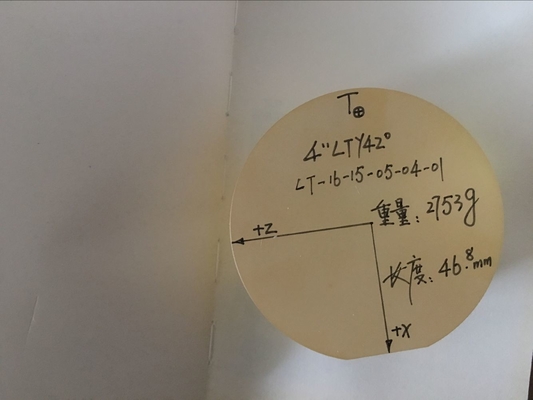 T⊕
4"LTY42°
LT-16-15-05-04-01
重量:2753g
+Z
长度:46.8mm
+X